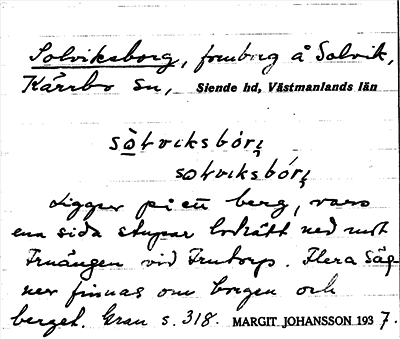 Solviksborg, fornborg å Solvik,
Kärrbo sn, Siende hd, Västmanlands län
sò̱lviksbórj
solviksbórj
Ligger på ett berg, vars
ena sida stupar lodrätt ned mot
Fruängen vid Frutorp. Flera Säg-
ner finnas om borgen och
berget. Grau s. 318. MARGIT JOHANSSON 1937.